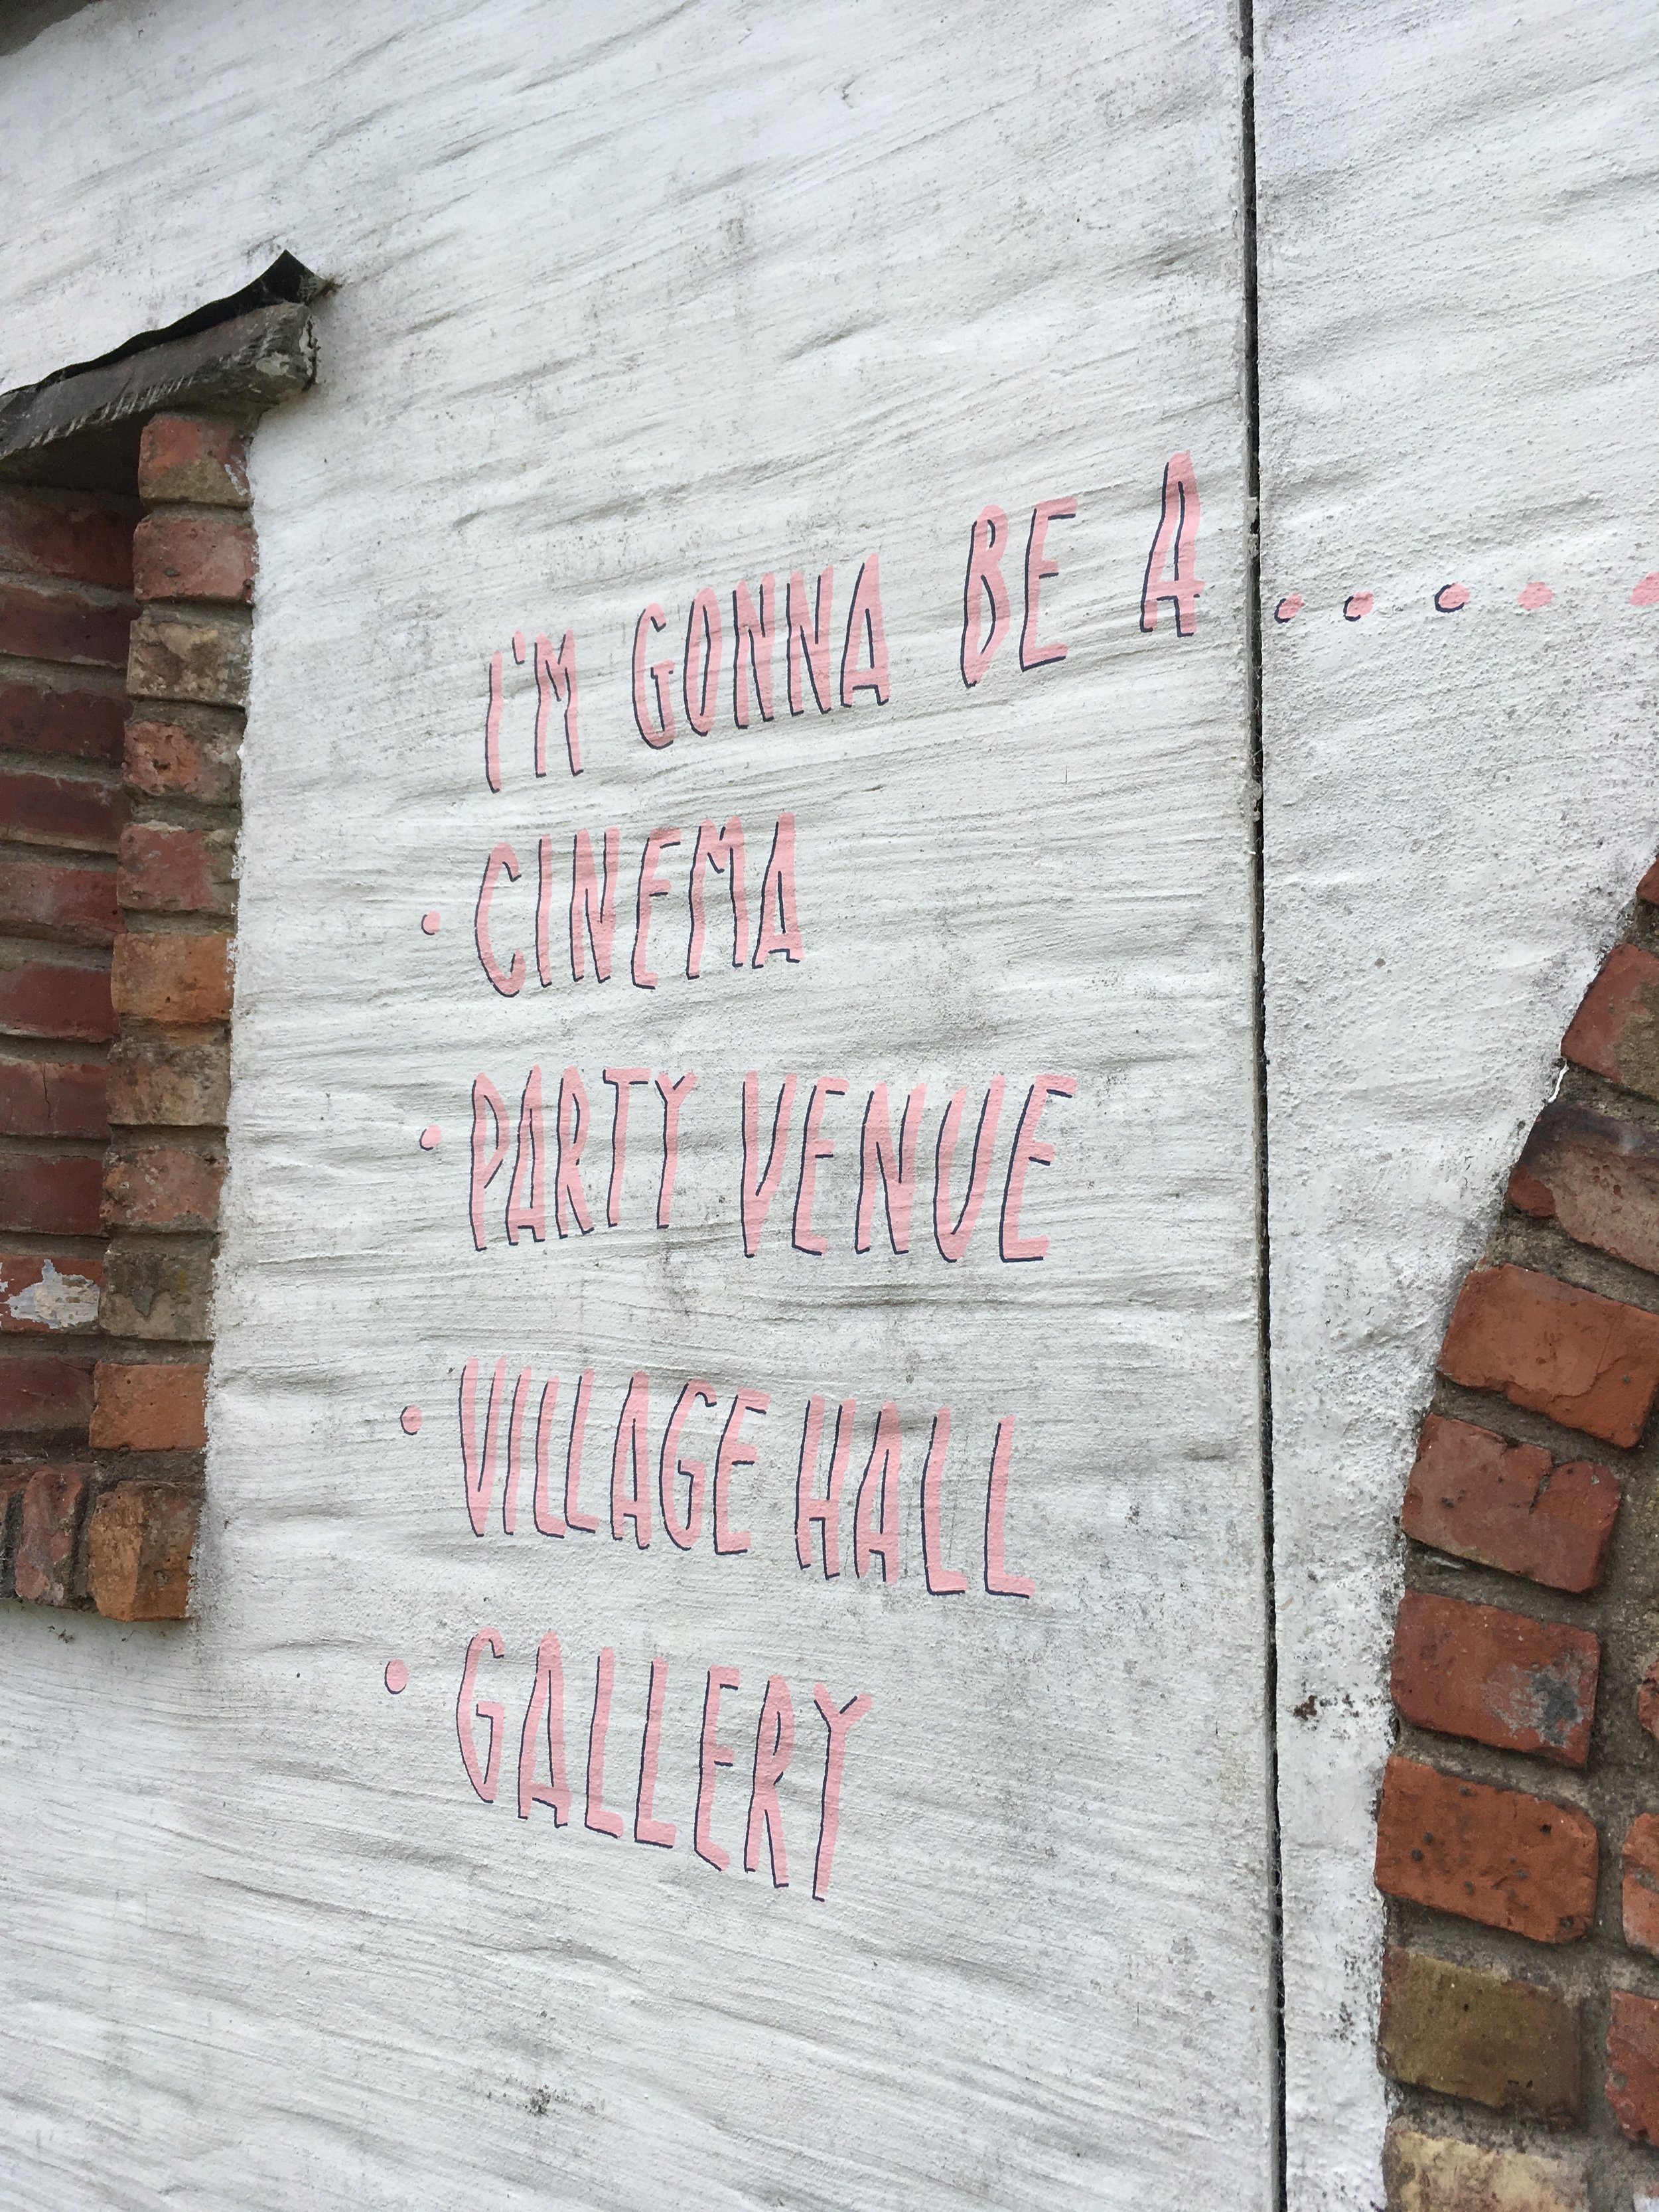 I'M GONNA BE A.....
• CINEMA
• PARTY VENUE
• VILLAGE HALL
• GALLERY